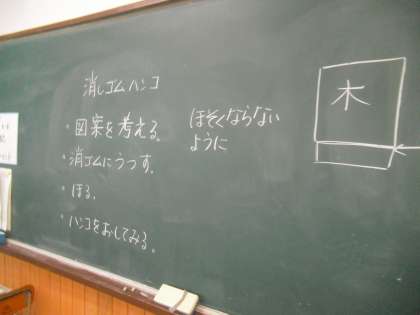 消しゴムハンコ
・図案を考える。
・消ゴムにうつす。
・ほる.
・ハンコをおしてみる。
ほそくならない
ように
木